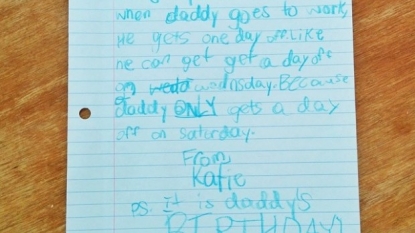 when daddy goes to work,
He gets one day off. Like
he can get get a day off
on wedo wednsday. BECause
daddy ONLY gets a day
off on Saturday.
From,
Katie
PS. it is daddy's
BIRTHDAY!